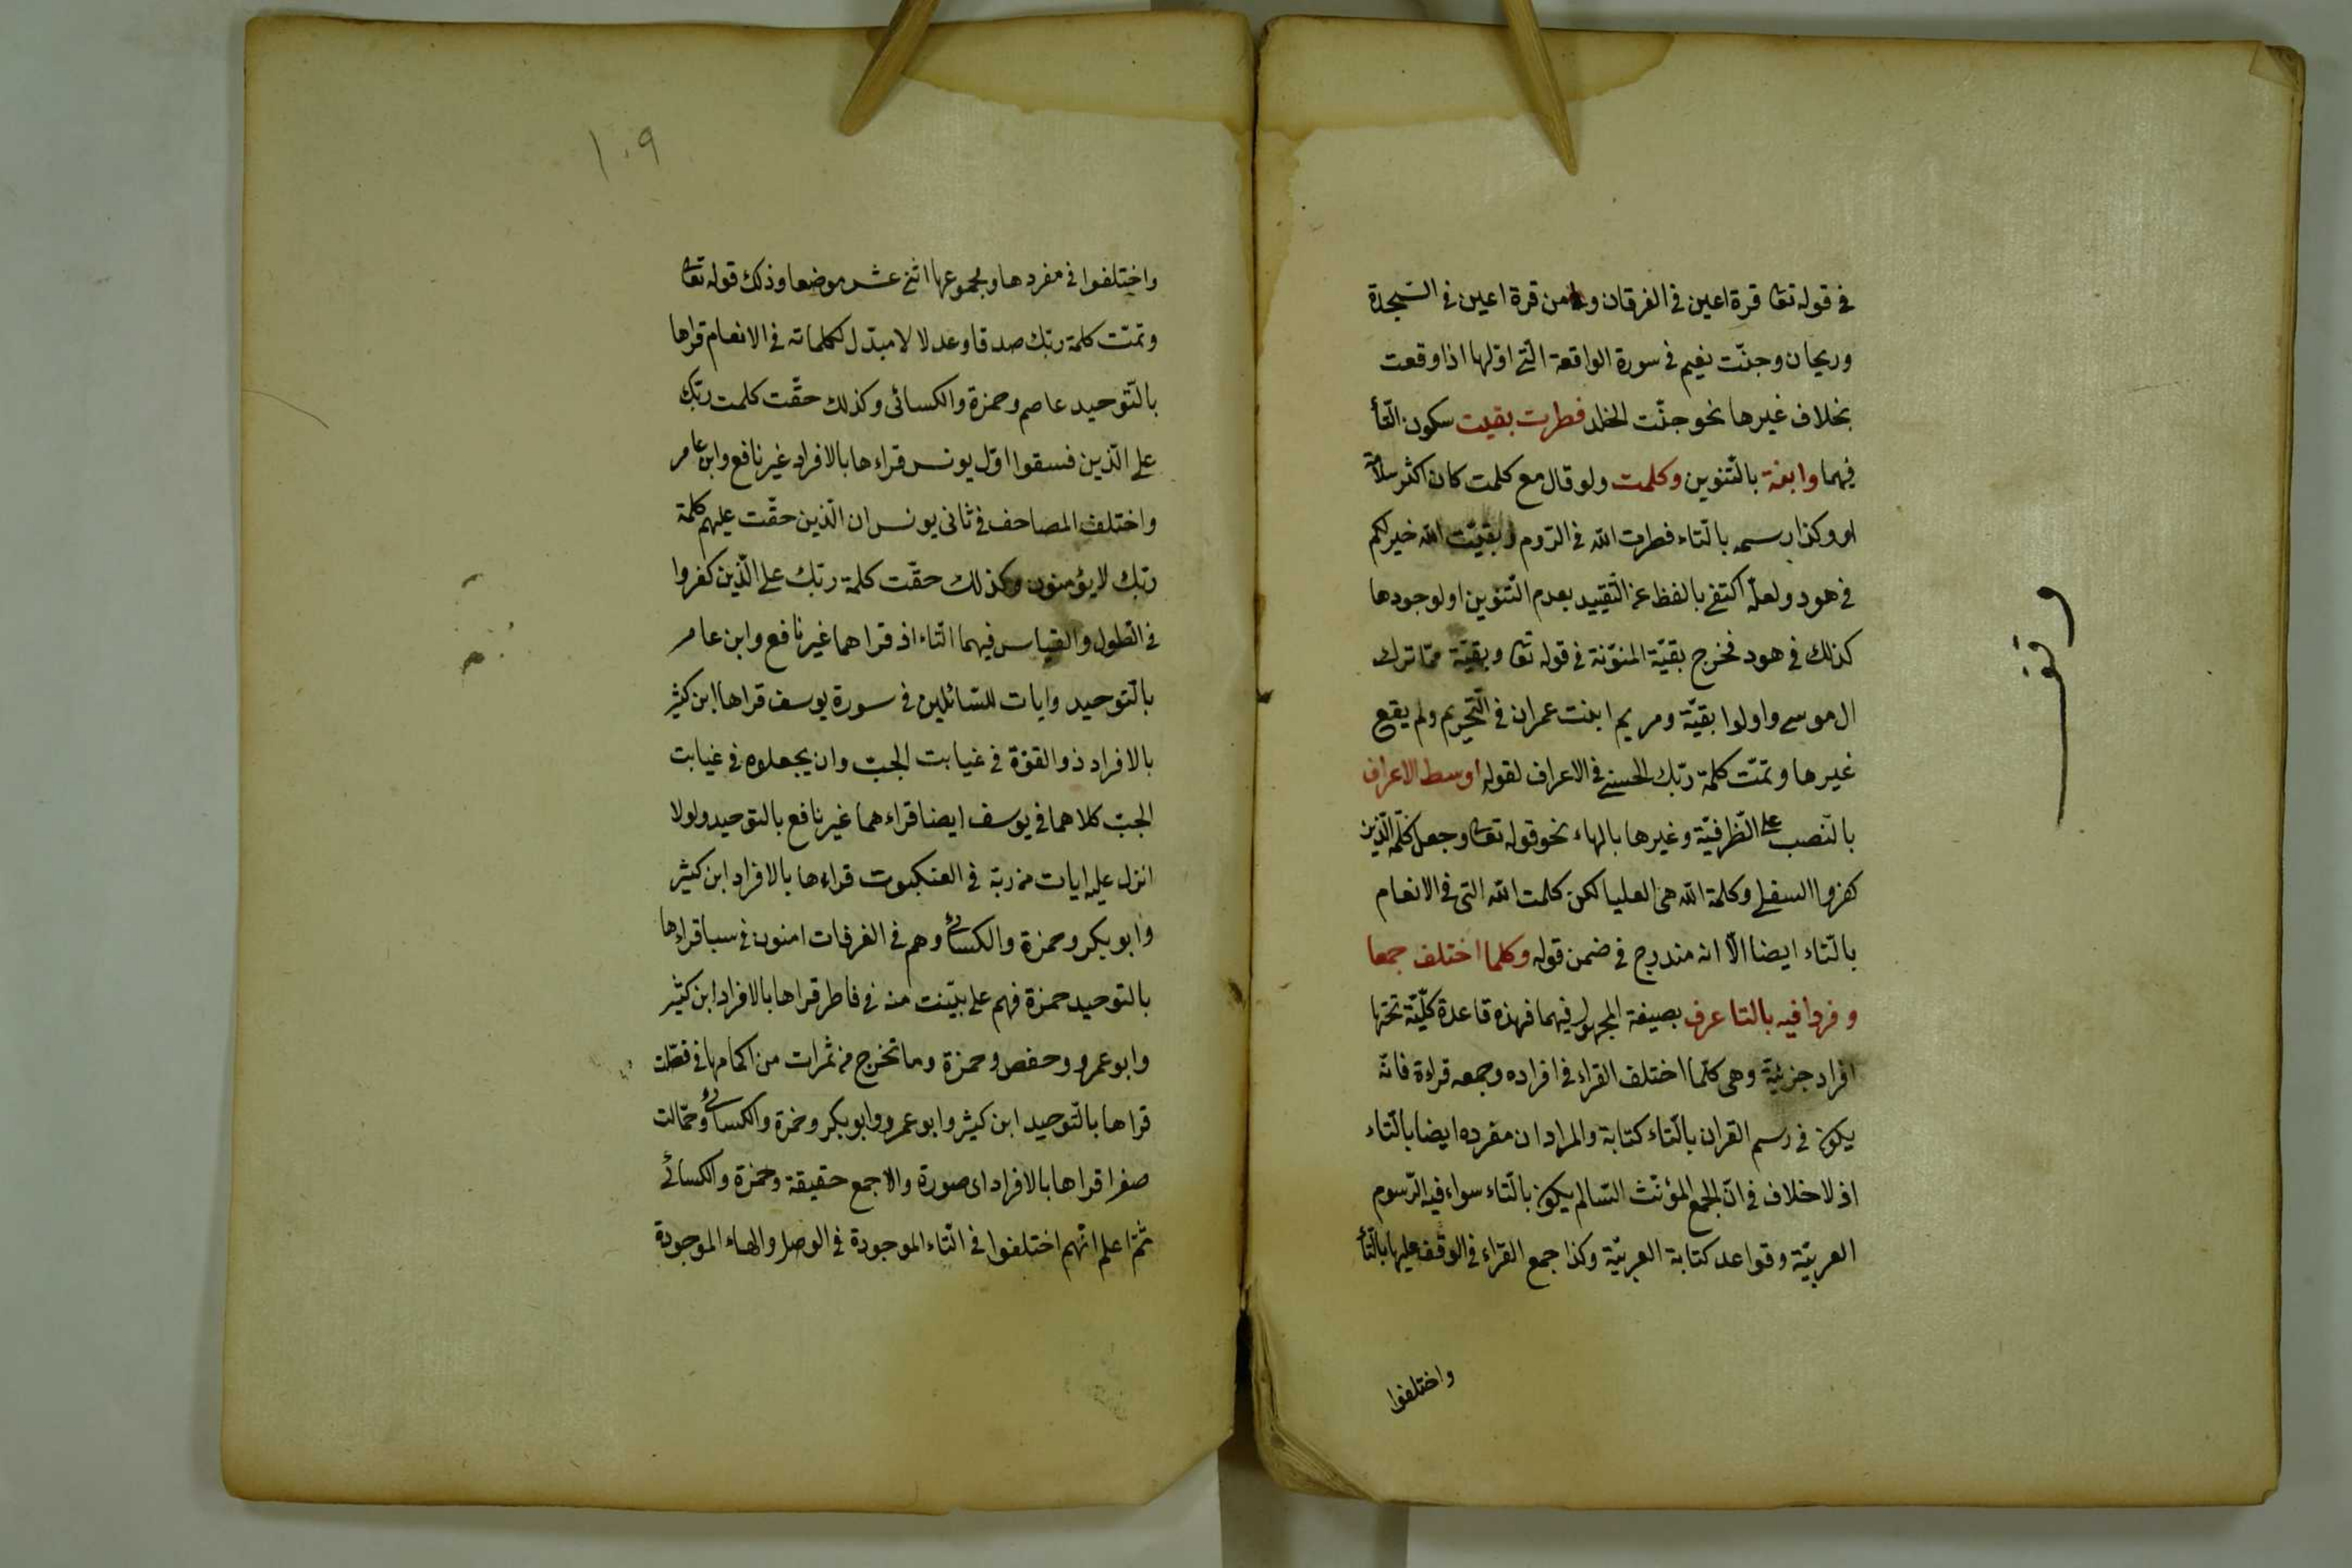 في قوله تعا قرة اعين في الفرقان و من قرة اعين في السّجدة
وريحان وجنّت نعيم في سورة الواقعة الّتي اوّلها اذا وقعت
بخلاف غيرها نحو جنّت الخلد فطرت بقيت سكون التّأ
فيهما وابنة بالتّنوين وكلمت ولو قال مع كلمت كان اكثر سلاسة
او وكذا رسمه بالتّاء فطرت الله في الرّوم و بقيّت الله خير لكم
في هود ولعلّه اكتفى بالفظ عن التّقييد بعدم التّنوين او لوجودها
كذلك في هود فخرج بقيّة المنوّنة في قوله تعا وبقيّة ممّا ترك
ال موسى واولوا بقيّة ومريم ابنت عمران في التّحريم ولم يقع
غيرها وتمّت كلمة ربّك الحسنى في الاعراف لقوله اوسط الاعراف
بالنّصب على الظّرفيّة وغيرها بالهاء نحو قوله تعا وجعل كلمة الّذين
كفروا السفلى وكلمة الله هي العليا لكن كلمت الله التى في الانعام
بالتّاء ايضا الّا انه مندرج في ضمن قوله وكلما اختلف جمعا
و فردا فيه بالتا عرف بصيغة المجهول فيهما فهذه قاعدة كلّيّة تحتها
افراد جزئيّة وهى كلّما اختلف القراء في افراده وجمعه قراءة فانّه
يكون في رسم القران بالتّاء كتابة والمراد ان مفرده ايضا بالتّاء
اذ لا خلاف في انّ الجمع المؤنّث السّالم يكون بالتّاء سواء فيه الرّسوم
العربيّة وقواعد كتابة العربيّة وكذا جمع القرّاء في الوقف عليها بالتّأ
واختلفوا
وقف
١٠٩
واختلفوا في مفردها ومجموعها اثنى عشر موضعا وذلك قوله تعا
وتمّت كلمة ربّك صدقا وعدلا لا مبدّل لكلماته في الانعام قراها
بالتّوحيد عاصم وحمزة والكسائى وكذلك حقّت كلمت ربّك
على الّذين فسقوا اوّل يونس قراءها بالافراد غير نافع وابن عامر
واختلف المصاحف في ثانى يونس ان الّذين حقّت عليهم كلمة
ربّك لا يؤمنون وكذلك حقّت كلمة ربّك على الّذين كفروا
في الطول والقياس فيهما التّاء اذ قراهما غير نافع وابن عامر
بالتّوحيد وايات للسّائلين في سورة يوسف قراها ابن كثير
بالافراد ذو القوّة في غيابت الجبّ وان يجعلوه في غيابت
الجبّ كلاهما في يوسف ايضا قراءهما غير نافع بالتوحيد ولولا
انزل عليه ايات من ربّه في العنكبوت قراءها بالافراد ابن كثير
وابو بكر وحمزة والكسائى وهم في الغرفات امنون في سبا قراءها
بالتوحيد حمزة فهم على بيّنت منه في فاطر قراها بالافراد ابن كثير
وابو عمرو وحفص وحمزة وما تخرج من ثمرات من اكمامها في فصّلت
قراها بالتّوحيد ابن كثير وابو عمرو وابو بكر وحمزة والكسائى وجمّالت
صفرا قراها بالافراد اى صورة والا جمع حقيقة وحمزة والكسائى
ثمّ اعلم انّهم اختلفوا في التّاء الموجودة في الوصل والهاء الموجودة